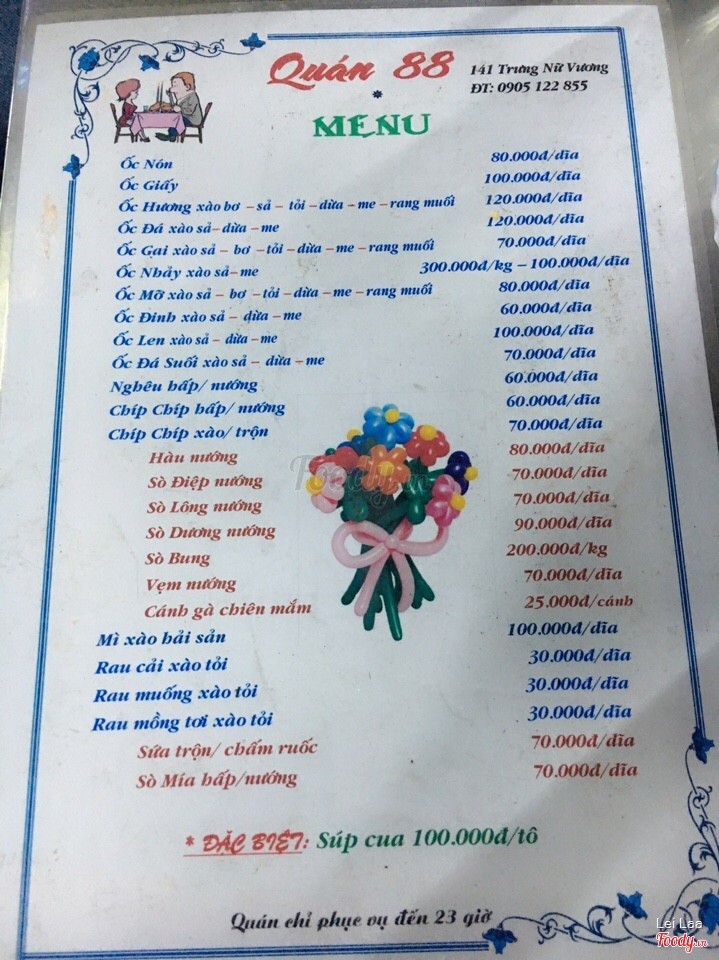 Quán 88
141 Trưng Nữ Vương
ĐT: 0905 122 855
*
MENU
Ốc Nón 80.000đ/dĩa
Ốc Giấy 100.000đ/dĩa
Ốc Hương xào bơ – sả – tỏi – dừa – me – rang muối 120.000đ/dĩa
Ốc Đá xào sả – dừa – me 120.000đ/dĩa
Ốc Gai xào sả – bơ – tỏi – dừa – me – rang muối 70.000đ/dĩa
Ốc Nhảy xào sả – me 300.000đ/kg – 100.000đ/dĩa
Ốc Mỡ xào sả – bơ – tỏi – dừa – me – rang muối 80.000đ/dĩa
Ốc Đinh xào sả – dừa – me 60.000đ/dĩa
Ốc Len xào sả – dừa – me 100.000đ/dĩa
Ốc Đá Suối xào sả – dừa – me 70.000đ/dĩa
Nghêu hấp/ nướng 60.000đ/dĩa
Chíp Chíp hấp/ nướng 60.000đ/dĩa
Chíp Chíp xào/ trộn 70.000đ/dĩa
Hàu nướng 80.000đ/dĩa
Sò Điệp nướng 70.000đ/dĩa
Sò Lông nướng 70.000đ/dĩa
Sò Dương nướng 90.000đ/dĩa
Sò Bung 200.000đ/kg
Vẹm nướng 70.000đ/dĩa
Cánh gà chiên mắm 25.000đ/cánh
Mì xào hải sản 100.000đ/dĩa
Rau cải xào tỏi 30.000đ/dĩa
Rau muống xào tỏi 30.000đ/dĩa
Rau mồng tơi xào tỏi 30.000đ/dĩa
Sứa trộn/ chấm ruốc 70.000đ/dĩa
Sò Mía hấp/nướng 70.000đ/dĩa
* ĐẶC BIỆT: Súp cua 100.000đ/tô
Quán chỉ phục vụ đến 23 giờ
Foody.vn
Lei Laa
Foody.vn